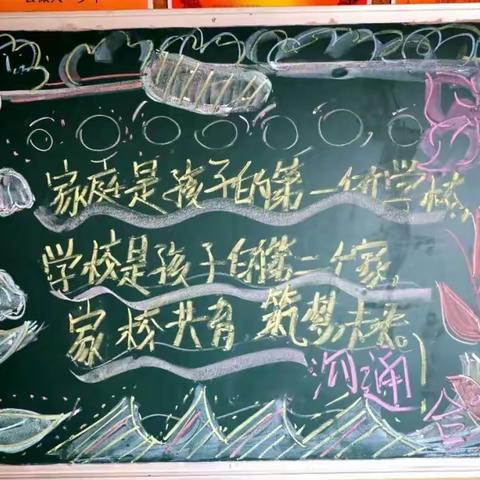 家庭是孩子的第一个学校,
学校是孩子的第二个家,
家校共育 筑梦未来。
沟通
合